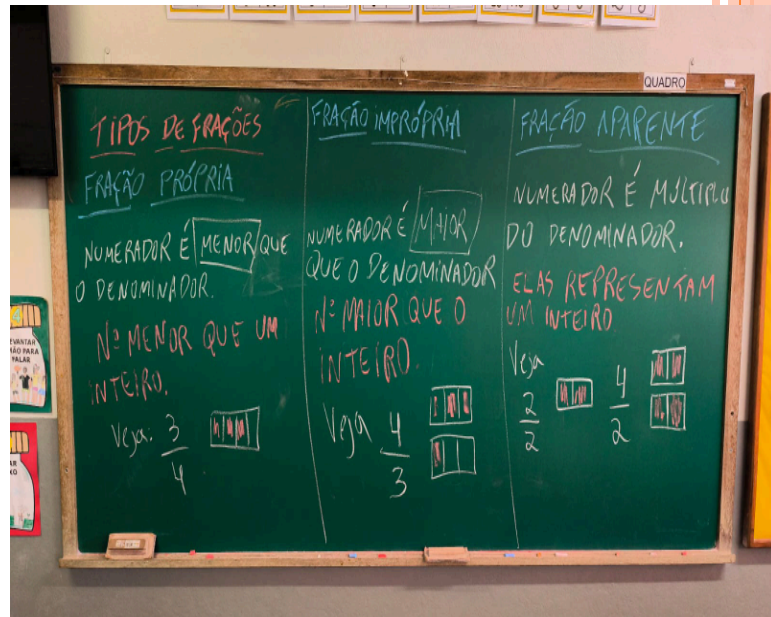 QUADRO
TIPOS DE FRAÇÕES
FRAÇÃO PRÓPRIA
NUMERADOR É MENOR QUE
O DENOMINADOR.
Nº MENOR QUE UM
INTEIRO.
Veja: 3
4
FRAÇÃO IMPRÓPRIA
NUMERADOR É MAIOR
QUE O DENOMINADOR
Nº MAIOR QUE O
INTEIRO.
Veja 4
3
FRAÇÃO APARENTE
NUMERADOR É MÚLTIPLO
DO DENOMINADOR.
ELAS REPRESENTAM
UM INTEIRO
Veja
2
2
4
2
LEVANTAR
MÃO PARA
FALAR